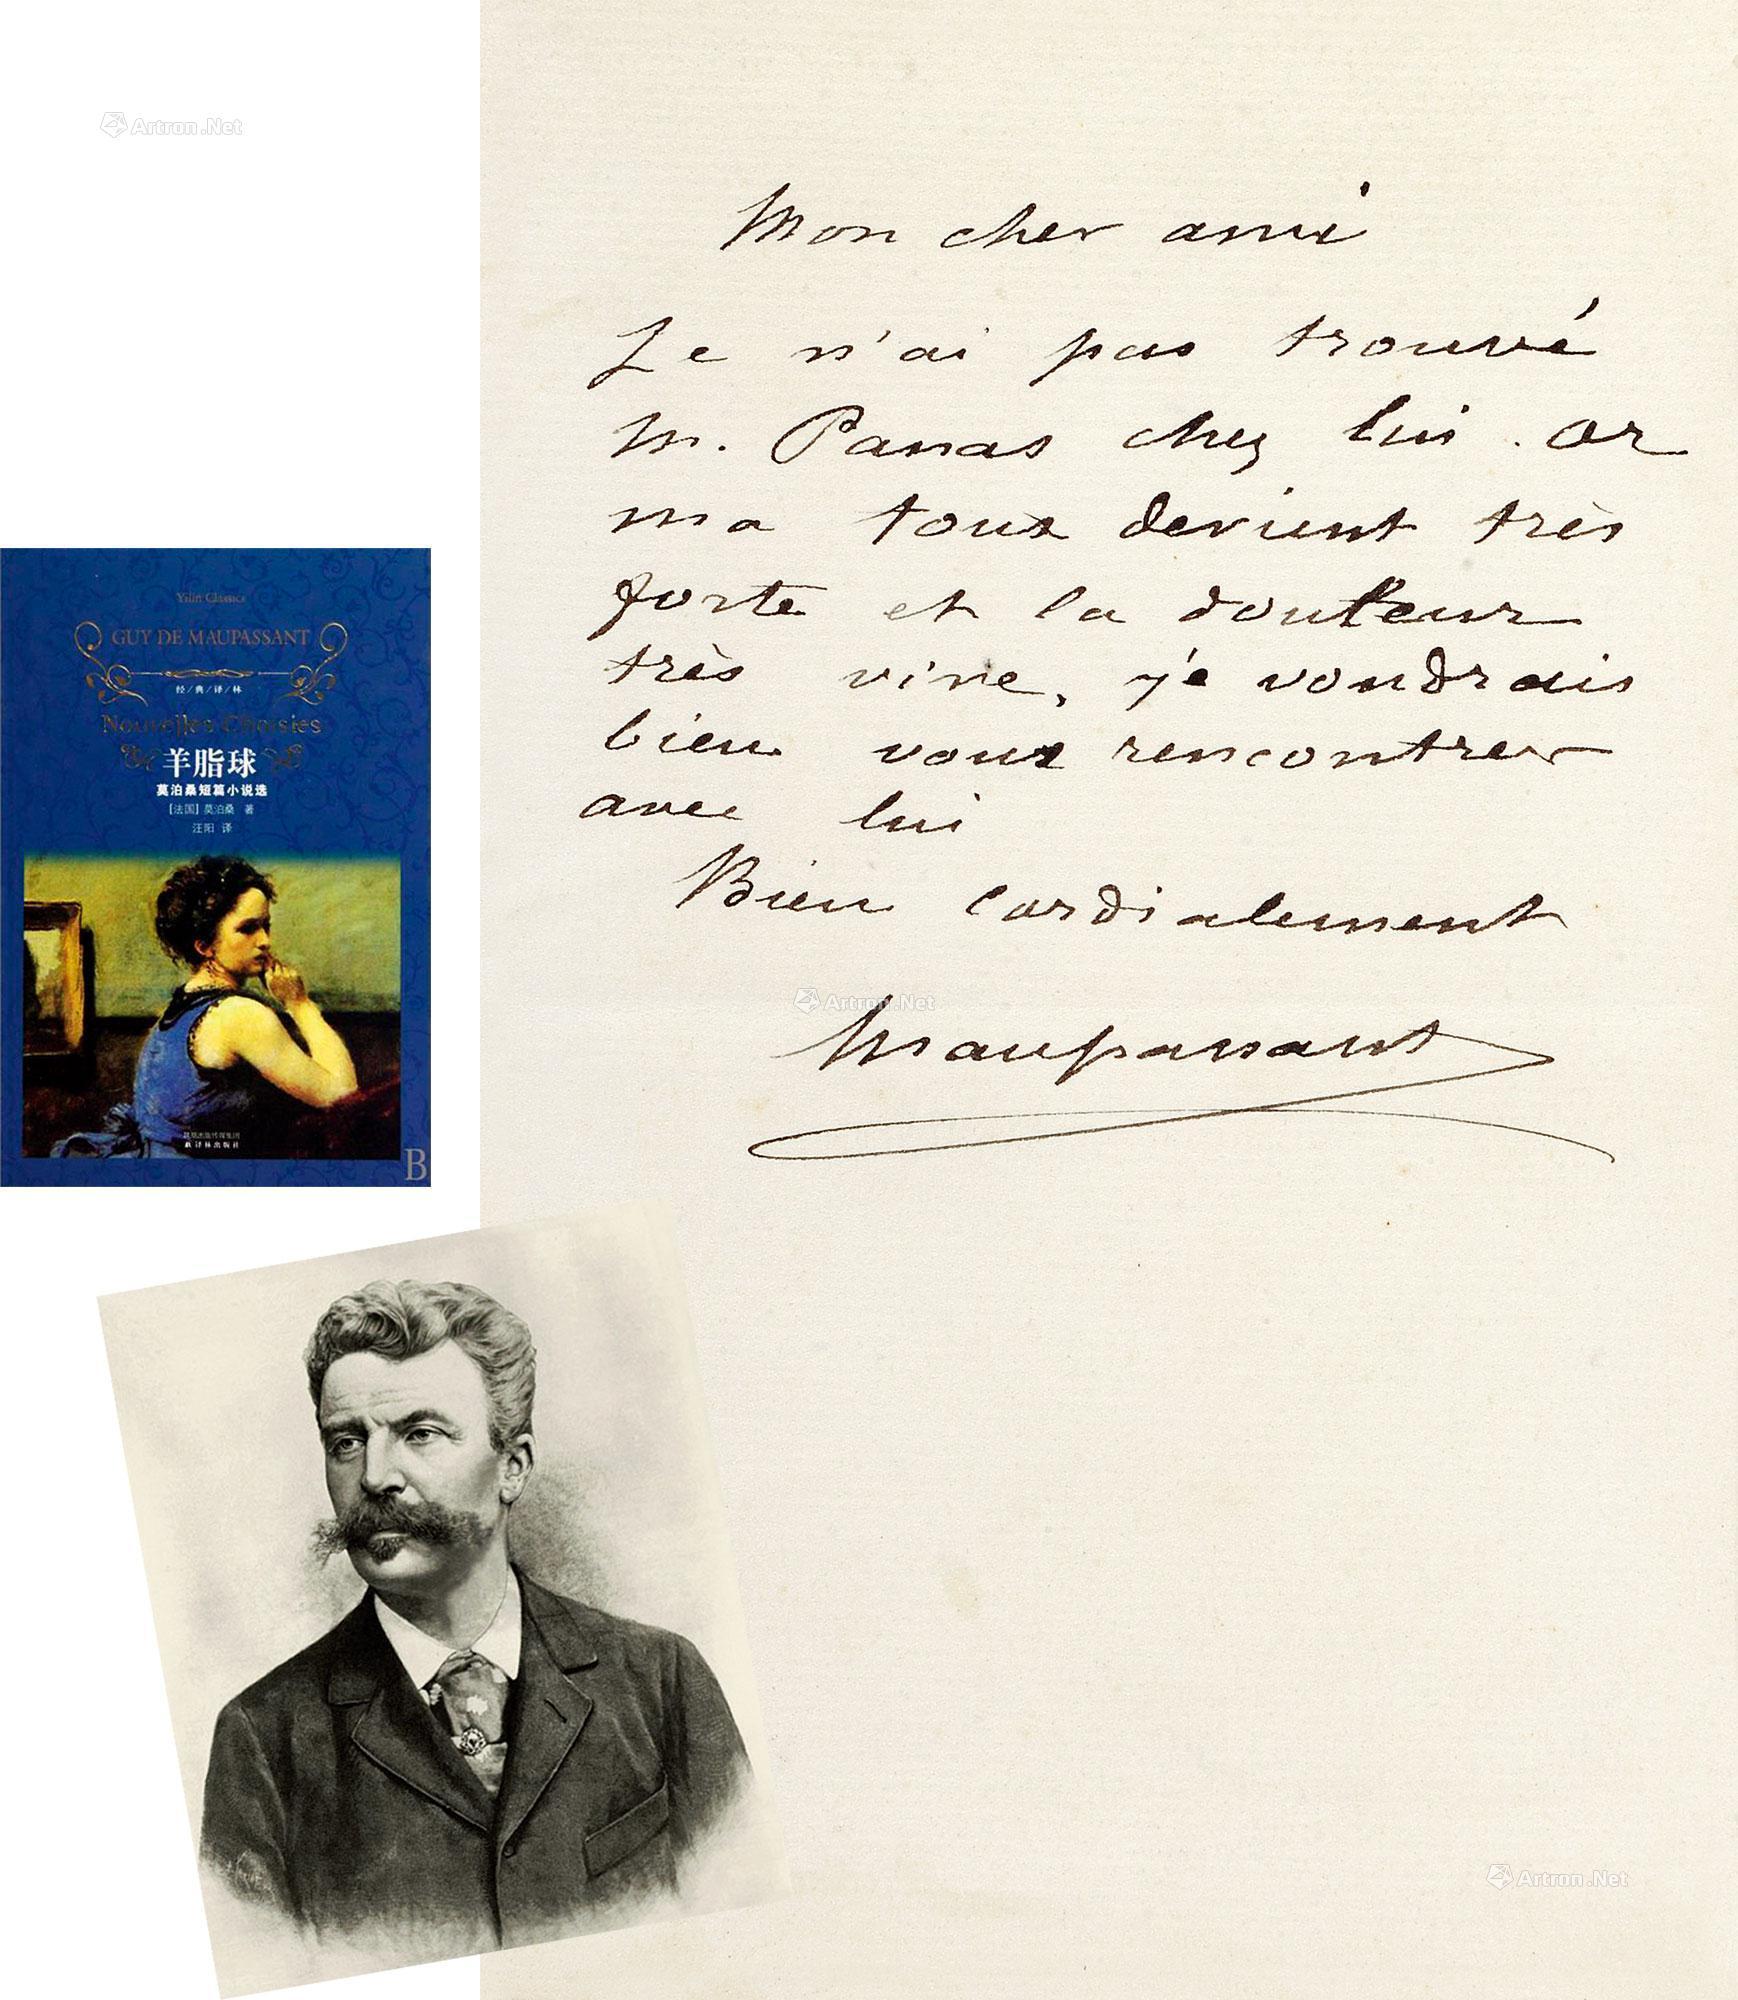 Artron.Net
Mon cher ami
Je n'ai pas trouvé
M. Panas chez lui. Or
ma toux devient très
forte et la douleur
très vive, je voudrais
bien vous rencontrer
avec lui
Bien cordialement
Maupassant
Artron.Net
Artron.Net
Yilin Classics
GUY DE MAUPASSANT
经/典/译/林
Nouvelles Choisies
羊脂球
莫泊桑短篇小说选
[法国] 莫泊桑 著
汪阳 译
凤凰出版传媒集团
译林出版社
B